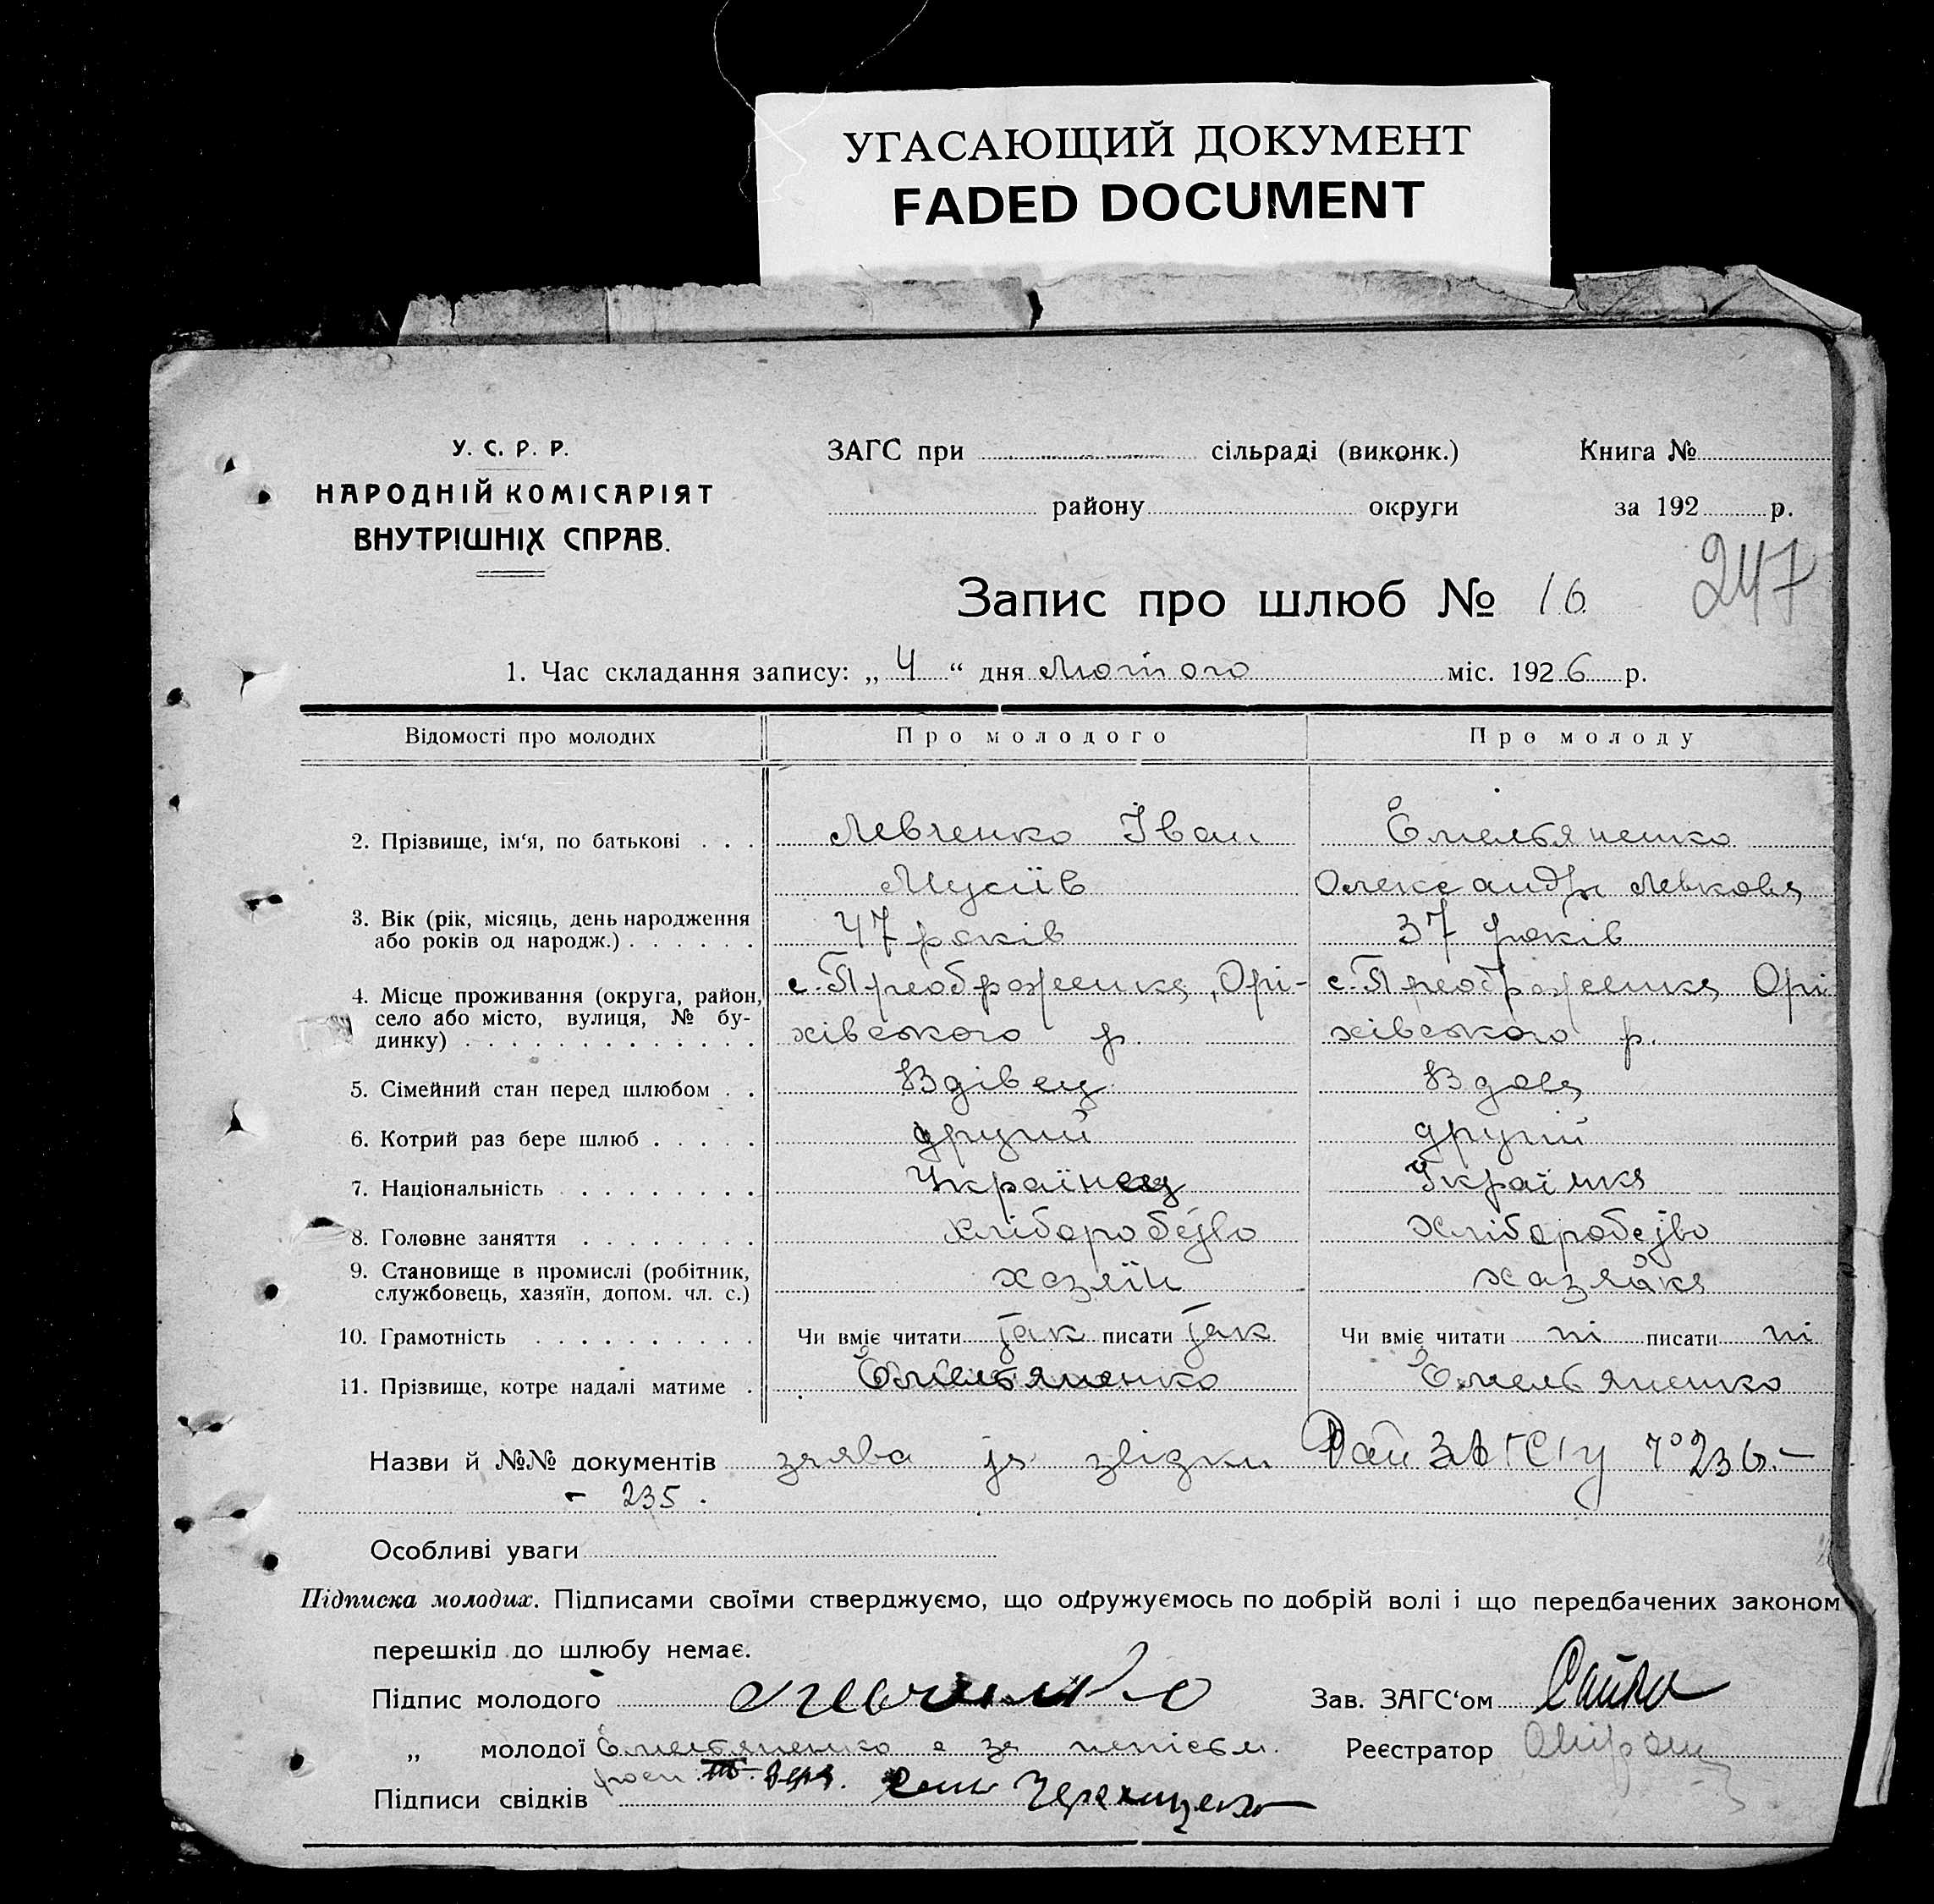 УГАСАЮЩИЙ ДОКУМЕНТ
FADED DOCUMENT
У. С. Р. Р.
НАРОДНІЙ КОМІСАРІЯТ
ВНУТРІШНІХ СПРАВ.
ЗАГС при сільраді (виконк.) Книга №
району округи за 192 р.
247
Запис про шлюб № 16
1. Час складання запису: „ 4 “ дня Лютого міс. 1926 р.
Відомості про молодих Про молодого Про молоду
2. Прізвище, ім‘я, по батькові . . . Левченко Іван Емельяненко
Мусіїв Олександра Левкова
3. Вік (рік, місяць, день народження
або років од народж.) . . . . . . 47 років 37 років
4. Місце проживання (округа, район, с. Преображенка, Орі- с. Преображенка Орі
село або місто, вулиця, № бу-
динку) . . . . . . . . . . . . . хівського р. хівського р.
5. Сімейний стан перед шлюбом . . Вдівец Вдова
6. Котрий раз бере шлюб . . . . другий другий
7. Національність . . . . . . . . Українец Українка
8. Головне заняття . . . . . . . . хліборобство Хліборобство
9. Становище в промислі (робітник,
службовець, хазяїн, допом. чл. с.) хозяїн хазяйка
10. Грамотність . . . . . . . . . . Чи вміє читати так писати так Чи вміє читати ні писати ні
11. Прізвище, котре надалі матиме . Емельяненко Емельяненко
Назви й №№ документів заява та звідки Рай ЗАГСʼу № 236.—
— 235.
Особливі уваги
Підписка молодих. Підписами своїми стверджуємо, що одружуємось по добрій волі і що передбачених законом
перешкід до шлюбу немає.
Підпис молодого Левченко Зав. ЗАГС‘ом
„ молодої Емельяненко а за Реєстратор
Підписи свідків